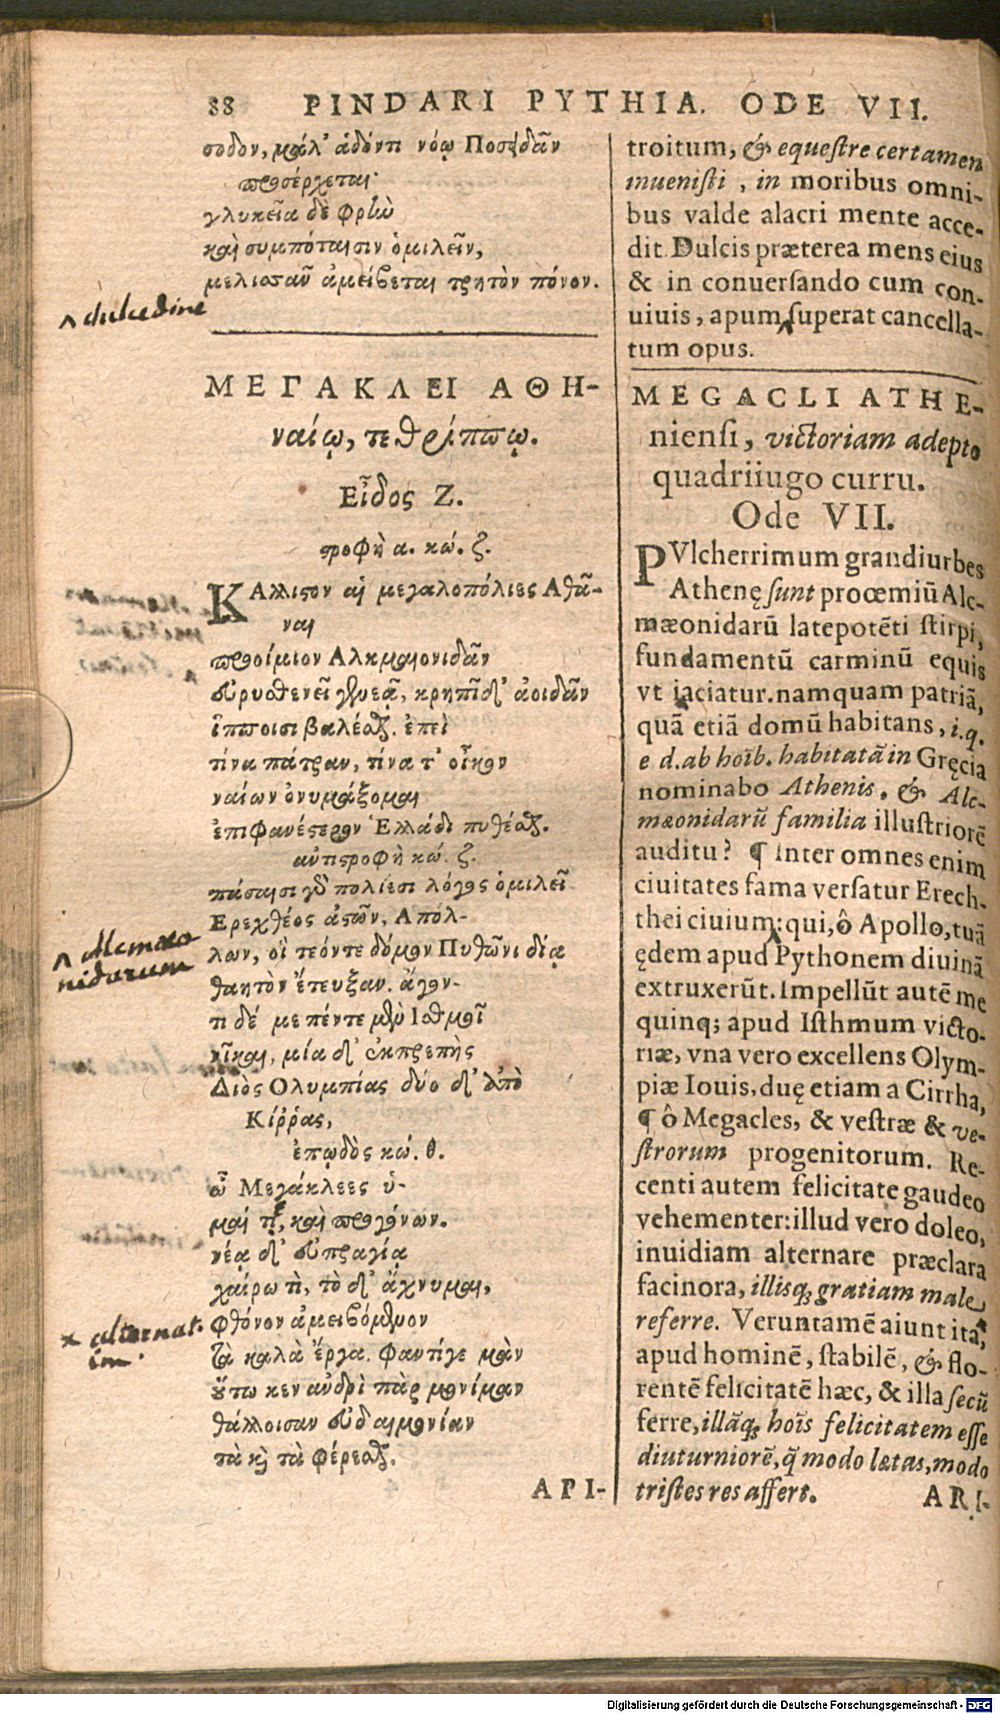 88 PINDARI PYTHIA. ODE VII.
σοδον, μάλ' ἁδόντι νόῳ Ποσειδᾶν
προσέρχεται·
γλυκεῖα δὲ φρὴν
καὶ συμπόταισιν ὁμιλεῖν,
μελιοσᾶν ἀμείβεται τρητὸν πόνον.
ΜΕΓΑΚΛΕΙ ΑΘΗ-
ναίῳ, τεθρίππῳ.
Εἶδος Ζ.
στροφὴ α. κώ. ζ.
ΚΑλλιστον αἱ μεγαλοπόλιες Αθᾶ-
ναι
προοίμιον Αλκμαιονιδᾶν
εὐρυσθενεῖ γενεᾷ, κρηπῖδ' ἀοιδᾶν
ἵπποισι βαλέσθαι. ἐπεὶ
τίνα πάτραν, τίνα τ' οἶκον
ναίων ὀνυμάξομαι
ἐπιφανέστερον Ἑλλάδι πυθέσθαι.
αὐτιστροφὴ κώ. ζ.
πάσαισι γὸ πολίεσι λόγος ὁμιλεῖ
Ερεχθέος ἀστῶν, Απόλ-
λων, οἳ τεόντε δόμον Πυθῶνι δίᾳ
θαητὸν ἔτευξαν. ἄγον-
τι δέ με πέντε μὲν Ισθμοῖ
νῖκαι, μία δ' ἐκπρεπὴς
Διὸς Ολυμπίας δύο δ' ἀπὸ
Κίῤῥας,
ἐπῳδὸς κώ. θ.
ὦ Μεγάκλεες ὑ-
μαί τε, καὶ προγόνων.
νέᾳ δ' εὐπραγίᾳ
χαίρω τὶ, τὸ δ' ἄχνυμαι,
φθόνον ἀμειβόμενον
τὰ καλὰ ἔργα. φαντίγε μὰν
οὕτω κεν ἀνδρὶ πὰρ μονίμαν
θάλλοισαν εὐδαιμονίαν
τὰ καὶ τὰ φέρεσθαι.
ΑΡΙ-
troitum, & equestre certamen
inuenisti, in moribus omni-
bus valde alacri mente acce-
dit. Dulcis præterea mens eius
& in conuersando cum con-
uiuis, apum superat cancella-
tum opus.
MEGACLI ATHE-
niensi, victoriam adepto
quadriiugo curru.
Ode VII.
PVlcherrimum grandiurbes
Athenę sunt procemiū Alc-
mæonidarū latepotēti stirpi,
fundamentū carminū equis
vt iaciatur. namquam patriā,
quā etiā domū habitans, i. q.
e d. ab hoīb. habitatā in Gręcia
nominabo Athenis, & Alc-
mæonidarū familia illustriorē
auditu? ¶ Inter omnes enim
ciuitates fama versatur Erech-
thei ciuium: qui, ô Apollo, tuā
ędem apud Pythonem diuinā
extruxerūt. Impellūt autē me
quinq; apud Isthmum victo-
riæ, vna vero excellens Olym-
piæ Iouis, duę etiam a Cirrha,
¶ ô Megacles, & vestræ & ve-
strorum progenitorum. Re-
centi autem felicitate gaudeo
vehementer: illud vero doleo,
inuidiam alternare præclara
facinora, illisq; gratiam male
referre. Veruntamē aiunt ita,
apud hominē, stabilē, & flo-
rentē felicitatē hæc, & illa secū
ferre, illāq; hoīs felicitatem esse
diuturniorē, q̄ modo lætas, modo
tristes res affert.
ARI-
^ dulcedine
^ Alcmæo
nidarum
x alternat.
im.
Digitalisierung gefördert durch die Deutsche Forschungsgemeinschaft - DFG